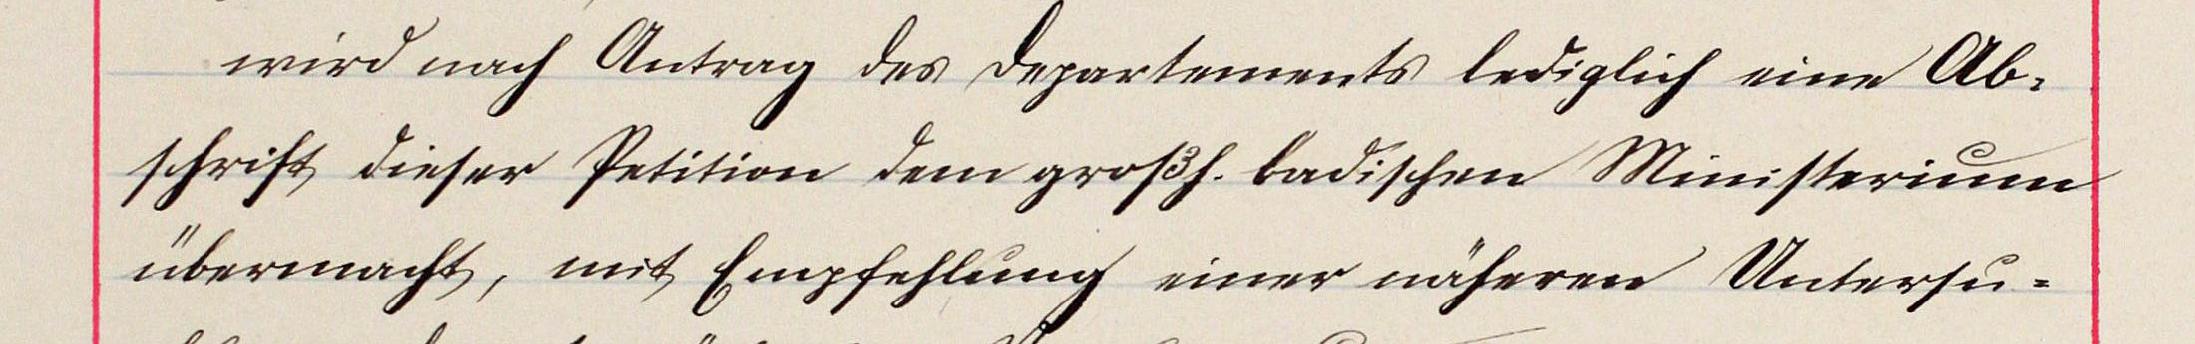 wird nach Antrag des Departements lediglich eine Ab-
schrift dieser Petition dem großh. badischen Ministerium
übermacht, mit Empfehlung einer näheren Untersu-